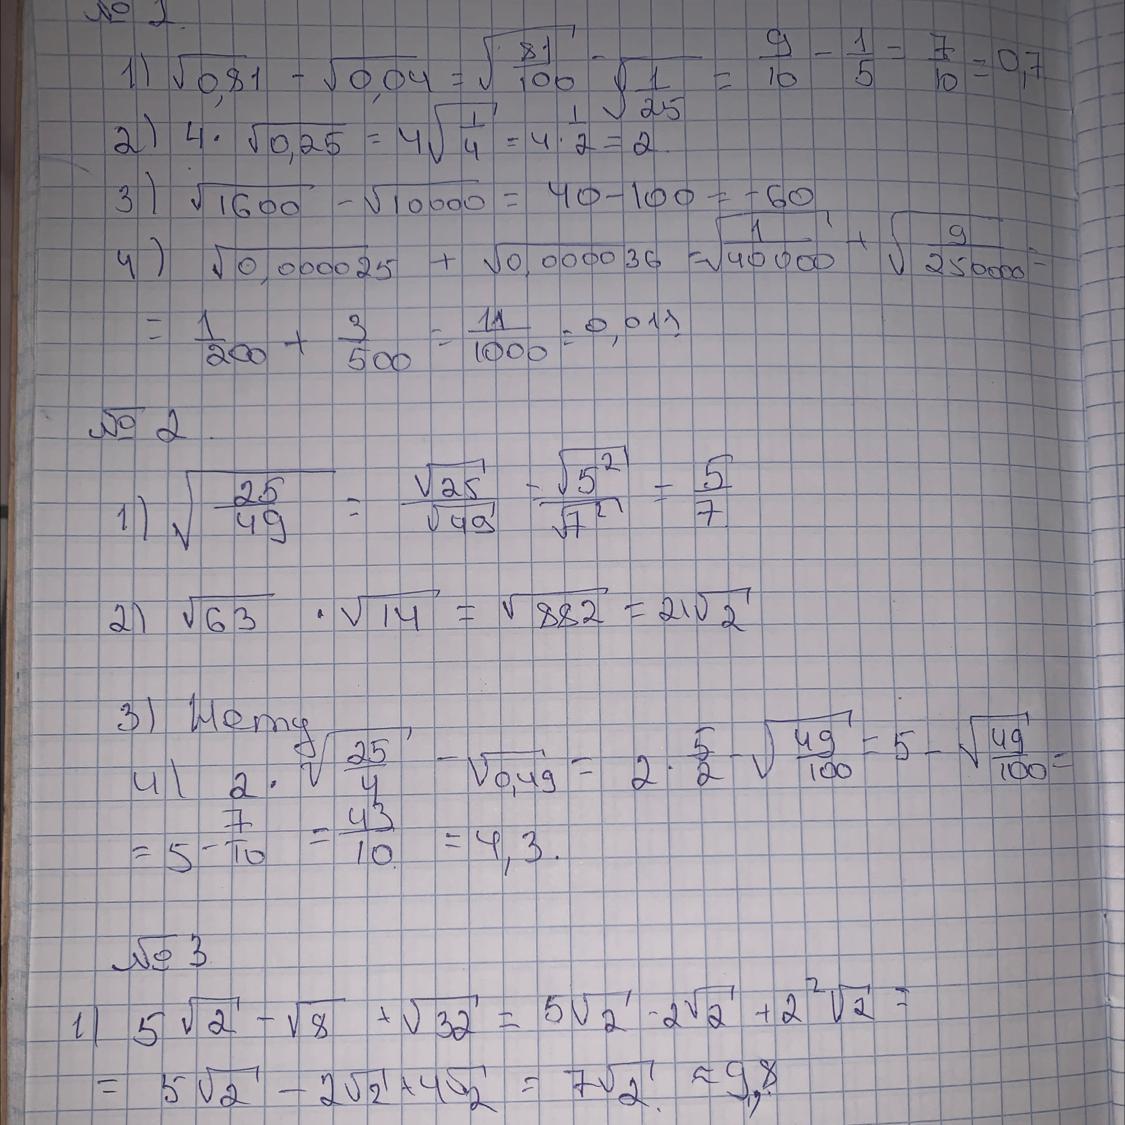 № 1.
1) √0,81 - √0,04 = √81/100 - √1/25 = 9/10 - 1/5 = 7/10 = 0,7
2) 4 · √0,25 = 4√1/4 = 4 · 1/2 = 2
3) √1600 - √10000 = 40 - 100 = -60
4) √0,000025 + √0,000036 = √1/40000 + √9/250000 =
= 1/200 + 3/500 = 11/1000 = 0,011
№ 2.
1) √25/49 = √25/√49 = √5²/√7² = 5/7
2) √63 · √14 = √882 = 21√2
3) Нету
4) 2 · √25/4 - √0,49 = 2 · 5/2 - √49/100 = 5 - √49/100 =
= 5 - 7/10 = 43/10 = 4,3.
№ 3
1) 5√2 - √8 + √32 = 5√2 - 2√2 + 2²√2 =
= 5√2 - 2√2 + 4√2 = 7√2. ≈ 9,8